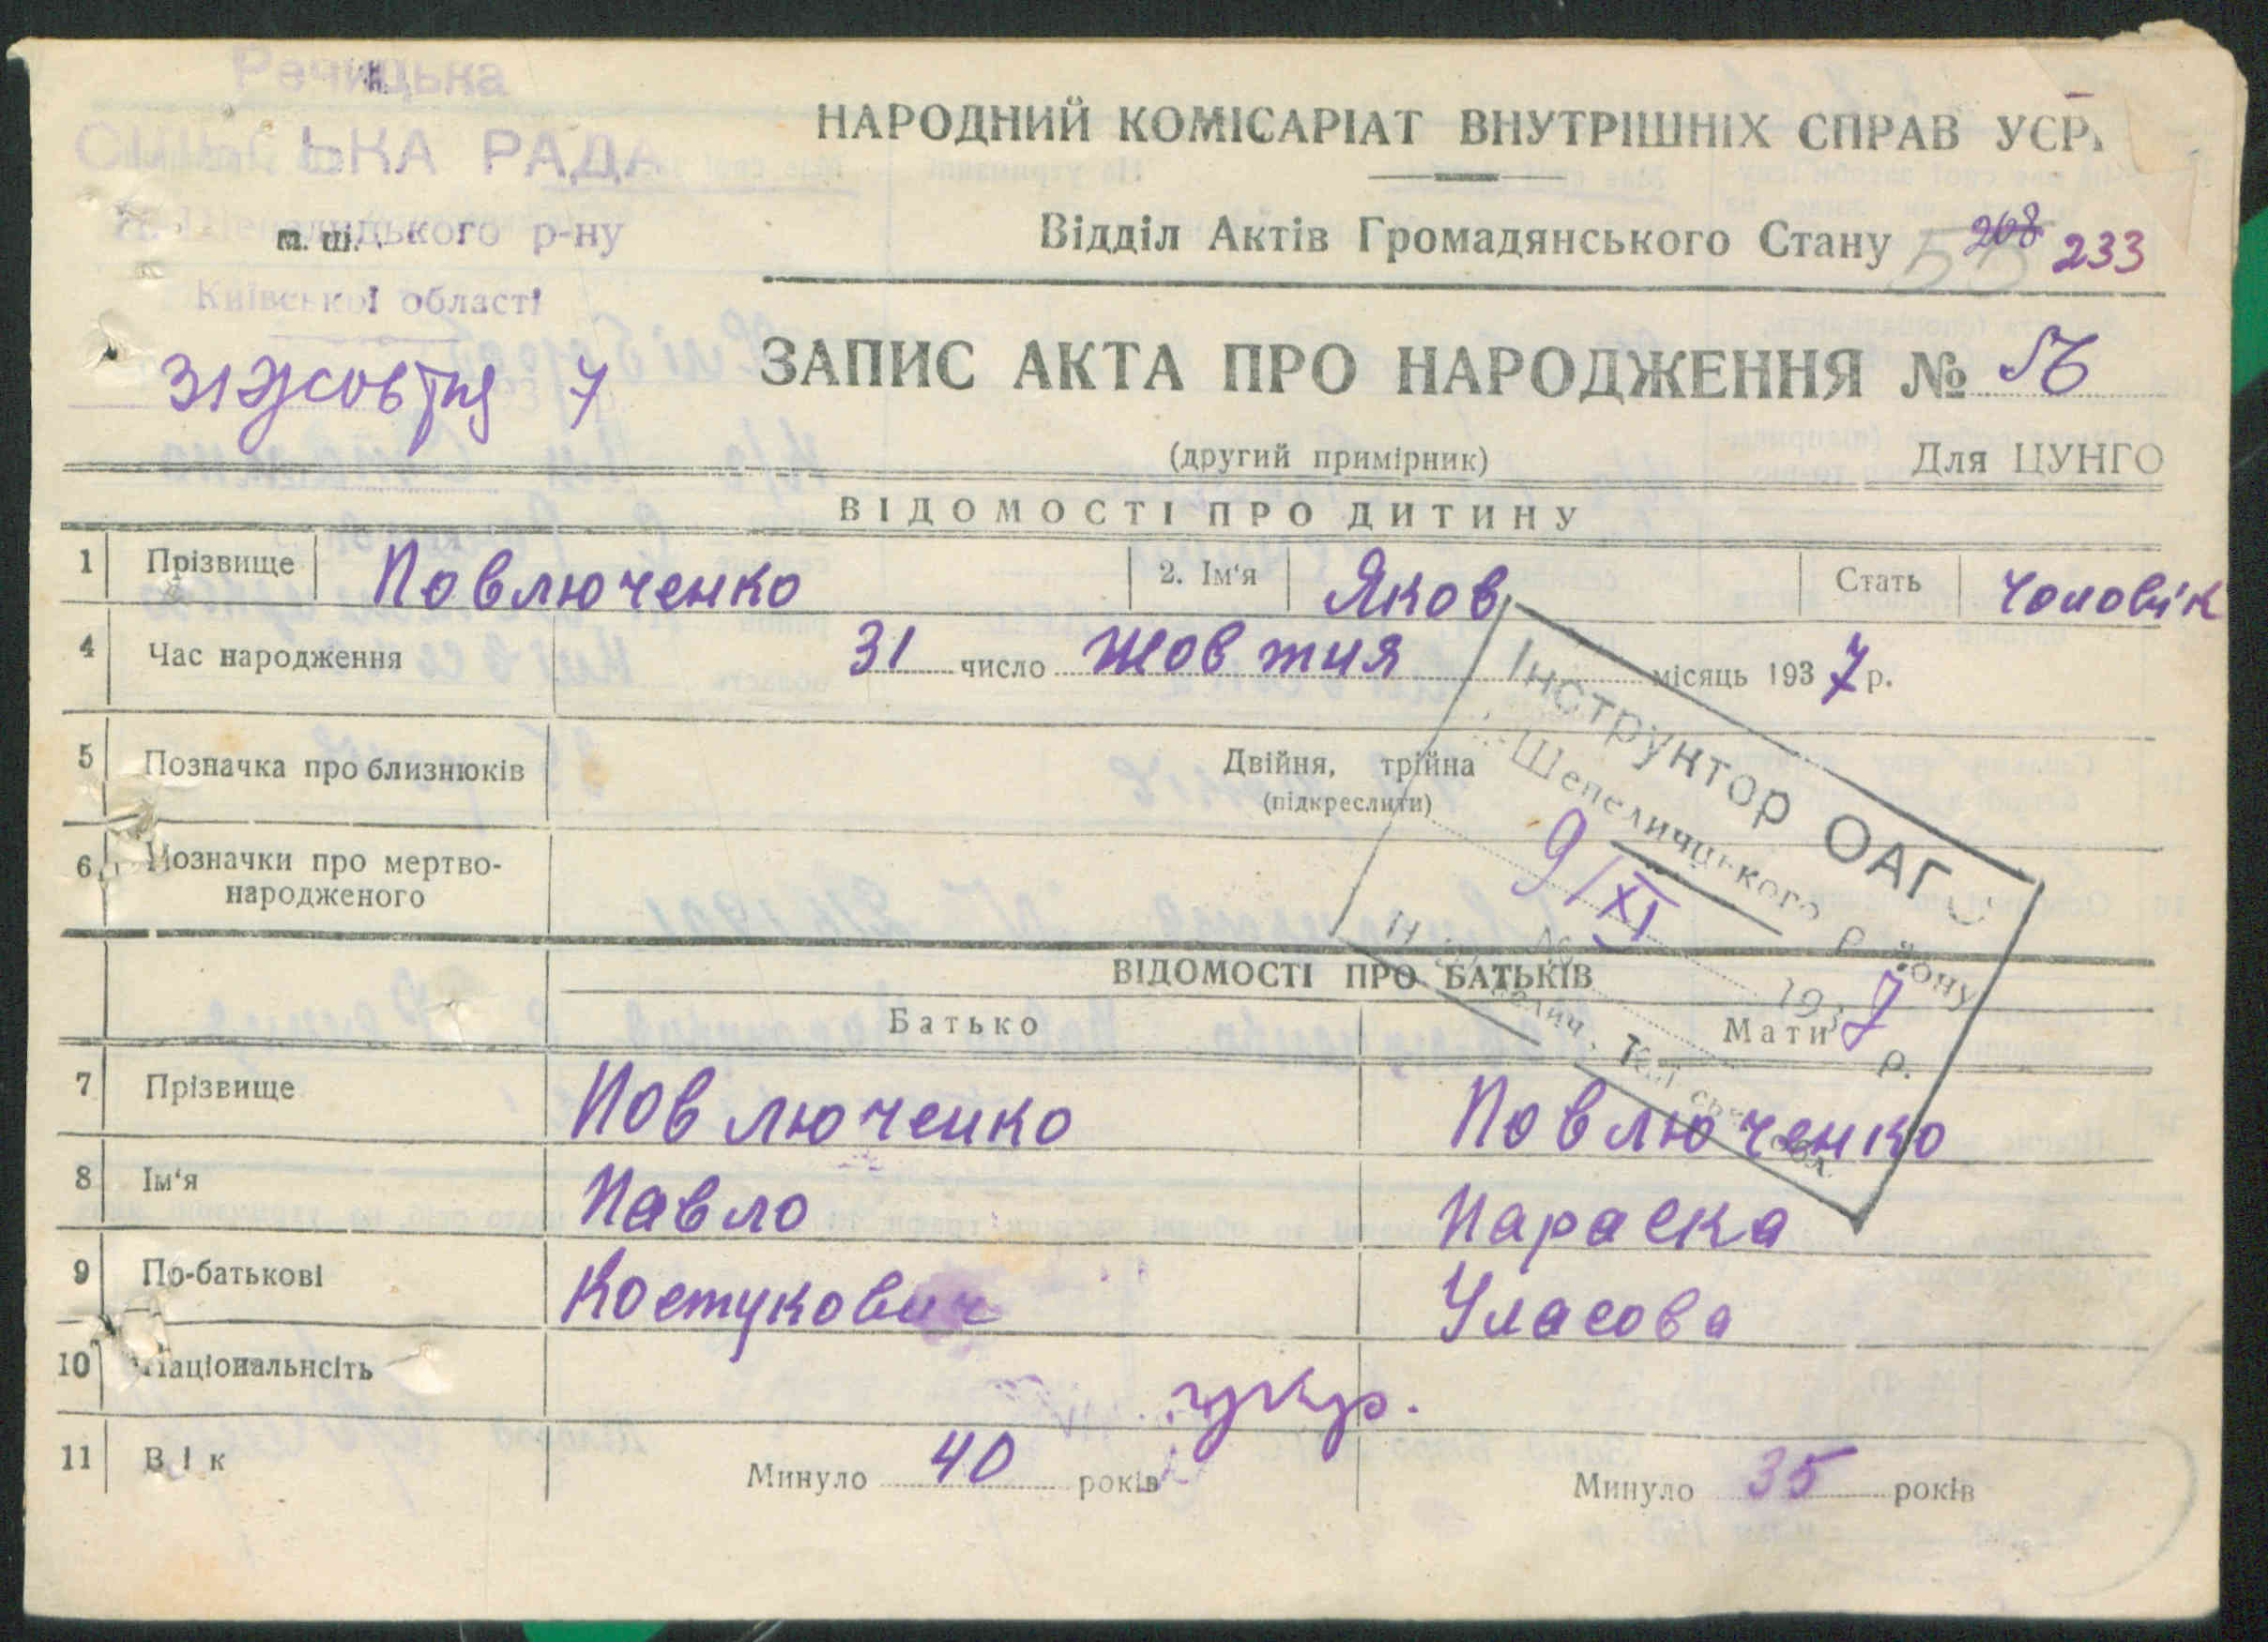 Речицька
СІЛЬСЬКА РАДА
м. ш.
р-ну
Київської області
31 жовтня 7
НАРОДНИЙ КОМІСАРІАТ ВНУТРІШНІХ СПРАВ УСРР
Відділ Актів Громадянського Стану 55 208 233
ЗАПИС АКТА ПРО НАРОДЖЕННЯ №
(другий примірник) Для ЦУНГО
ВІДОМОСТІ ПРО ДИТИНУ
1 Прізвище Повлюченко 2. Ім'я Яков Стать Чоловік
4 Час народження 31 число жовтня місяць 1937 р.
5 Позначка про близнюків Двійня, трійна
(підкреслити)
6 Позначки про мертво-
народженого
Інструктор ОАГС
Шепелицького району
9/XI 1937 р.
№
ВІДОМОСТІ ПРО БАТЬКІВ
Батько Мати
7 Прізвище Повлюченко Повлюченко
8 Ім'я Павло Параска
9 По-батькові Костукович Уласова
10 Національнсіть укр.
11 Вік Минуло 40 років Минуло 35 років